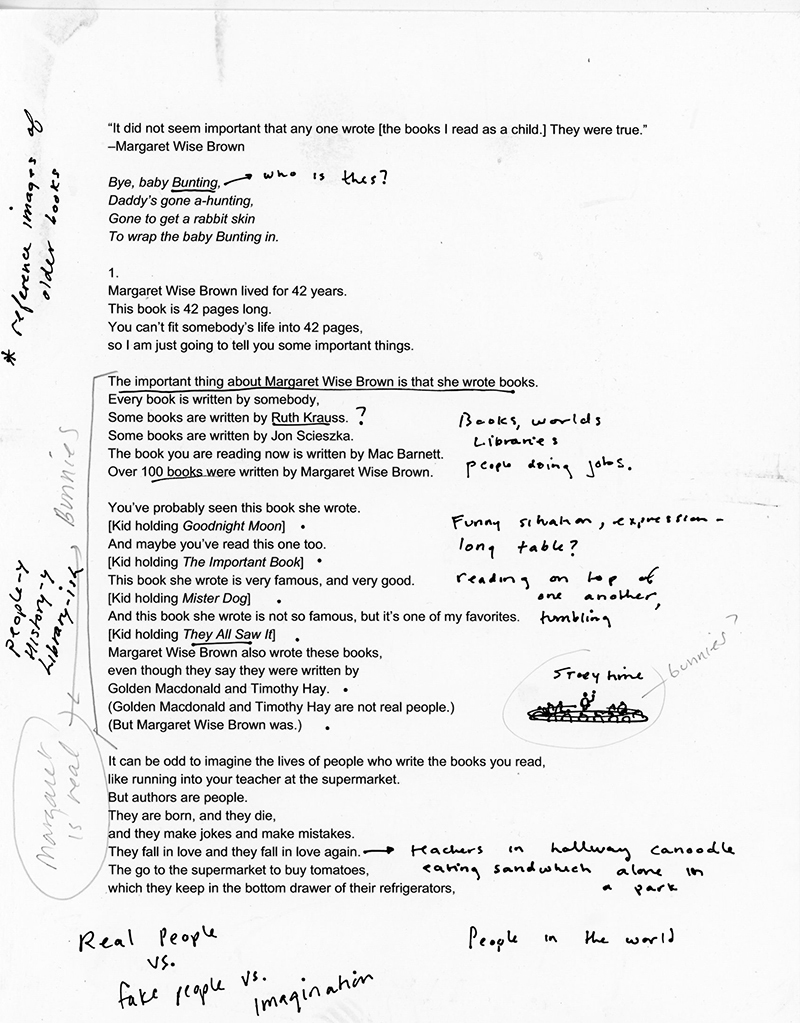 “It did not seem important that any one wrote [the books I read as a child.] They were true.”
–Margaret Wise Brown
Bye, baby Bunting, who is this?
Daddy’s gone a-hunting,
Gone to get a rabbit skin
To wrap the baby Bunting in.
* reference images of
older books
1.
Margaret Wise Brown lived for 42 years.
This book is 42 pages long.
You can’t fit somebody’s life into 42 pages,
so I am just going to tell you some important things.
The important thing about Margaret Wise Brown is that she wrote books.
Every book is written by somebody,
Some books are written by Ruth Krauss. ?
Some books are written by Jon Scieszka.
The book you are reading now is written by Mac Barnett.
Over 100 books were written by Margaret Wise Brown.
Books, worlds
Libraries
people doing jobs.
You’ve probably seen this book she wrote.
[Kid holding Goodnight Moon]
And maybe you’ve read this one too.
[Kid holding The Important Book]
This book she wrote is very famous, and very good.
[Kid holding Mister Dog]
And this book she wrote is not so famous, but it’s one of my favorites.
[Kid holding They All Saw It]
Margaret Wise Brown also wrote these books,
even though they say they were written by
Golden Macdonald and Timothy Hay.
(Golden Macdonald and Timothy Hay are not real people.)
(But Margaret Wise Brown was.)
Funny situation, expression –
long table?
reading on top of
one another,
tumbling
Story time
bunnies?
People-y
History-y
Library-ish
Bunnies
Margaret
is real
It can be odd to imagine the lives of people who write the books you read,
like running into your teacher at the supermarket.
But authors are people.
They are born, and they die,
and they make jokes and make mistakes.
They fall in love and they fall in love again. teachers in hallway canoodle
The go to the supermarket to buy tomatoes, eating sandwhich alone in
which they keep in the bottom drawer of their refrigerators, a park
Real People
vs.
fake people vs.
imagination
People in the world